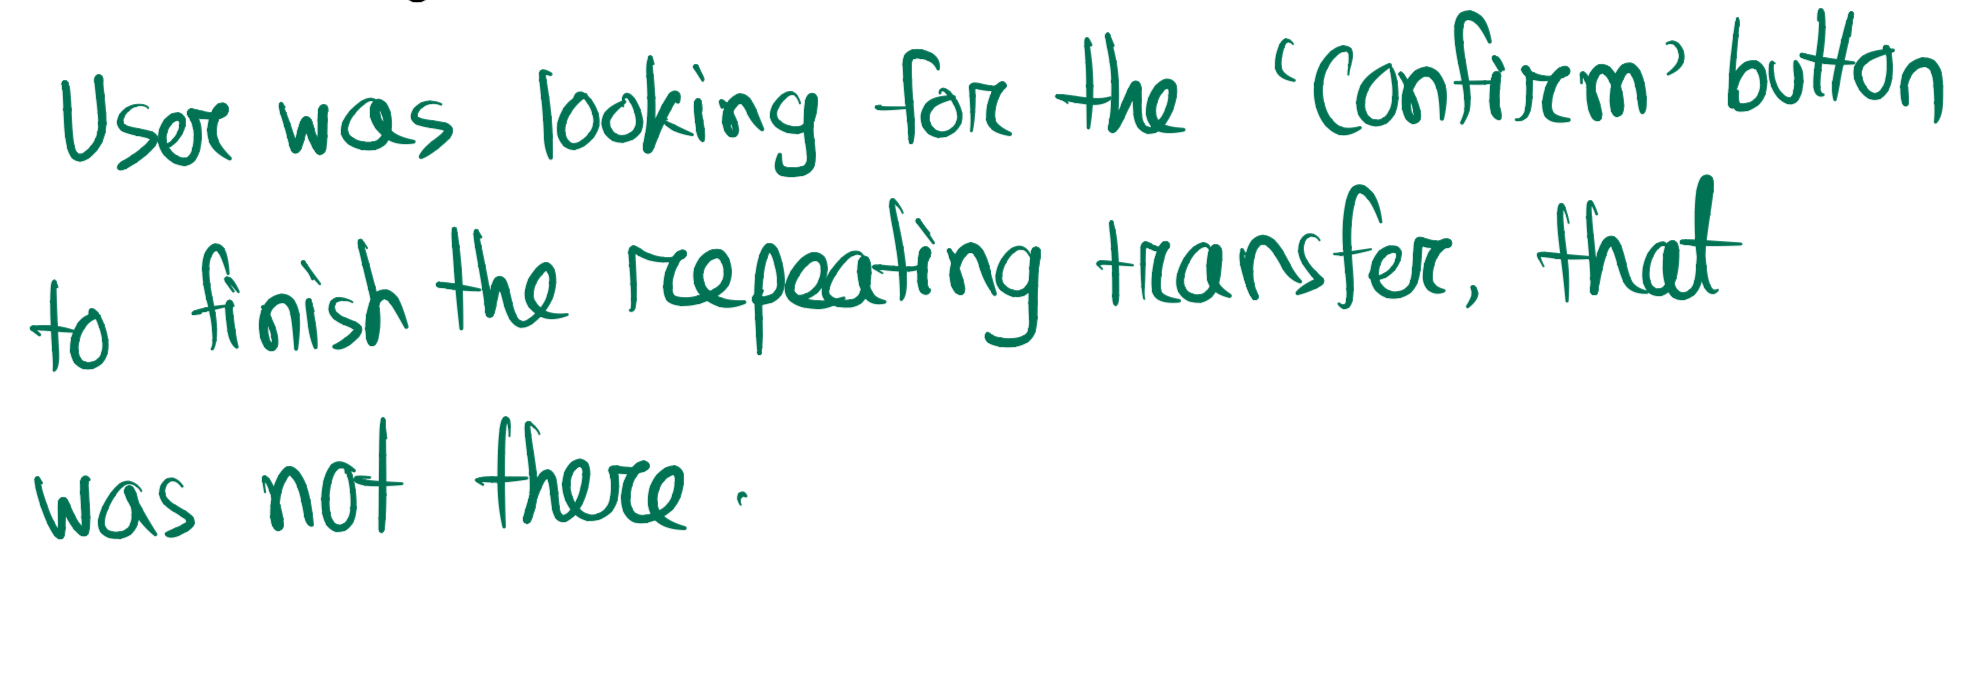 User was looking for the 'Confirm' button
to finish the repeating transfer, that
was not there.